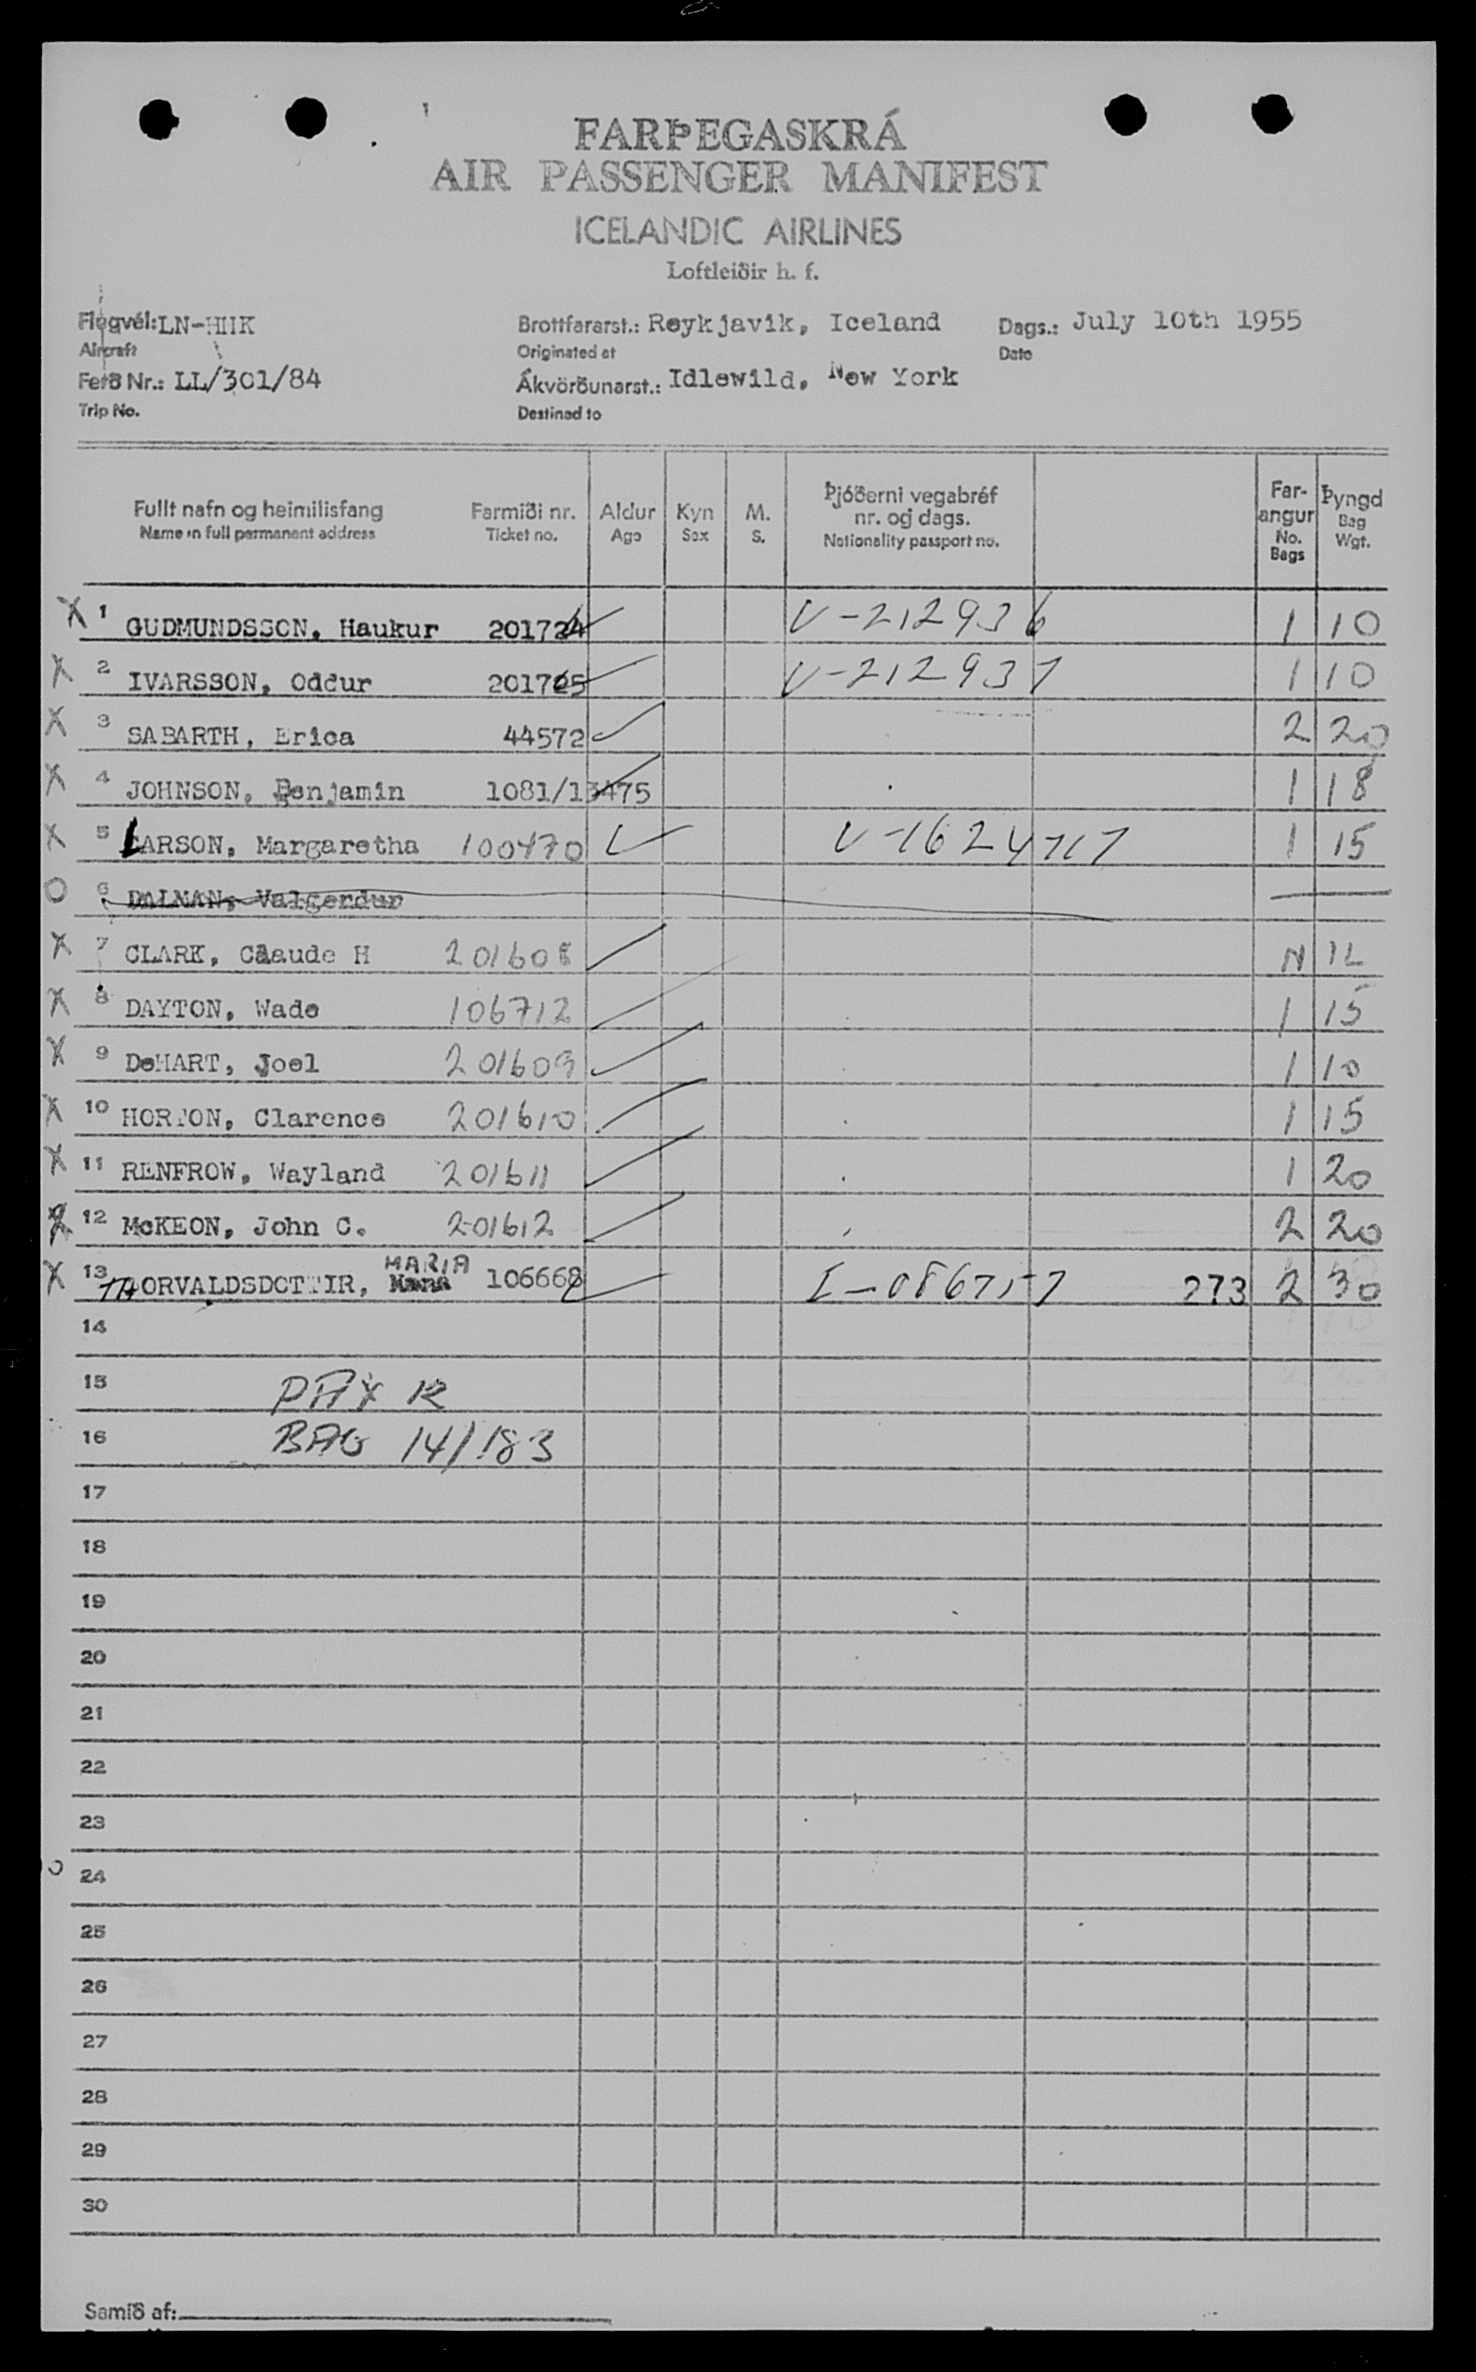 FARÞEGASKRÁ
AIR PASSENGER MANIFEST
ICELANDIC AIRLINES
Loftleiðir h. f.
Flugvél: LN-HHK Brottfararst.: Reykjavik, Iceland Dags.: July 10th 1955
Aircraft Originated at Date
Ferð Nr.: LL/301/84 Ákvörðunarst.: Idlewild, New York
Trip No. Destined to
Fullt nafn og heimilisfang Farmiði nr. Aldur Kyn M. Þjóðerni vegabréf nr. og dags. Far-angur Þyngd
Name in full permanent address Ticket no. Age Sex S. Nationality passport no. No. Bags Bag Wgt.
X 1 GUDMUNDSSON, Haukur 201724 V-212936 1 10
X 2 IVARSSON, Oddur 201725 V-212937 1 10
X 3 SABARTH, Erica 44572 2 20
X 4 JOHNSON, Benjamin 1081/13475 1 18
X 5 LARSON, Margaretha 100470 1 15
O 6 DALMAN, Valgerdur
X 7 CLARK, Claude H 201608 NIL
X 8 DAYTON, Wade 106712 1 15
X 9 DeHART, Joel 201609 1 10
X 10 HORTON, Clarence 201610 1 15
X 11 RENFROW, Wayland 201611 1 20
X 12 McKEON, John C. 201612 2 20
MARIA
X 13 THORVALDSDOTTIR, 106668 I-086757 273 2 30
14
15 PAX 12
16 BAG 14/183
17
18
19
20
21
22
23
24
25
26
27
28
29
30
Samið af: